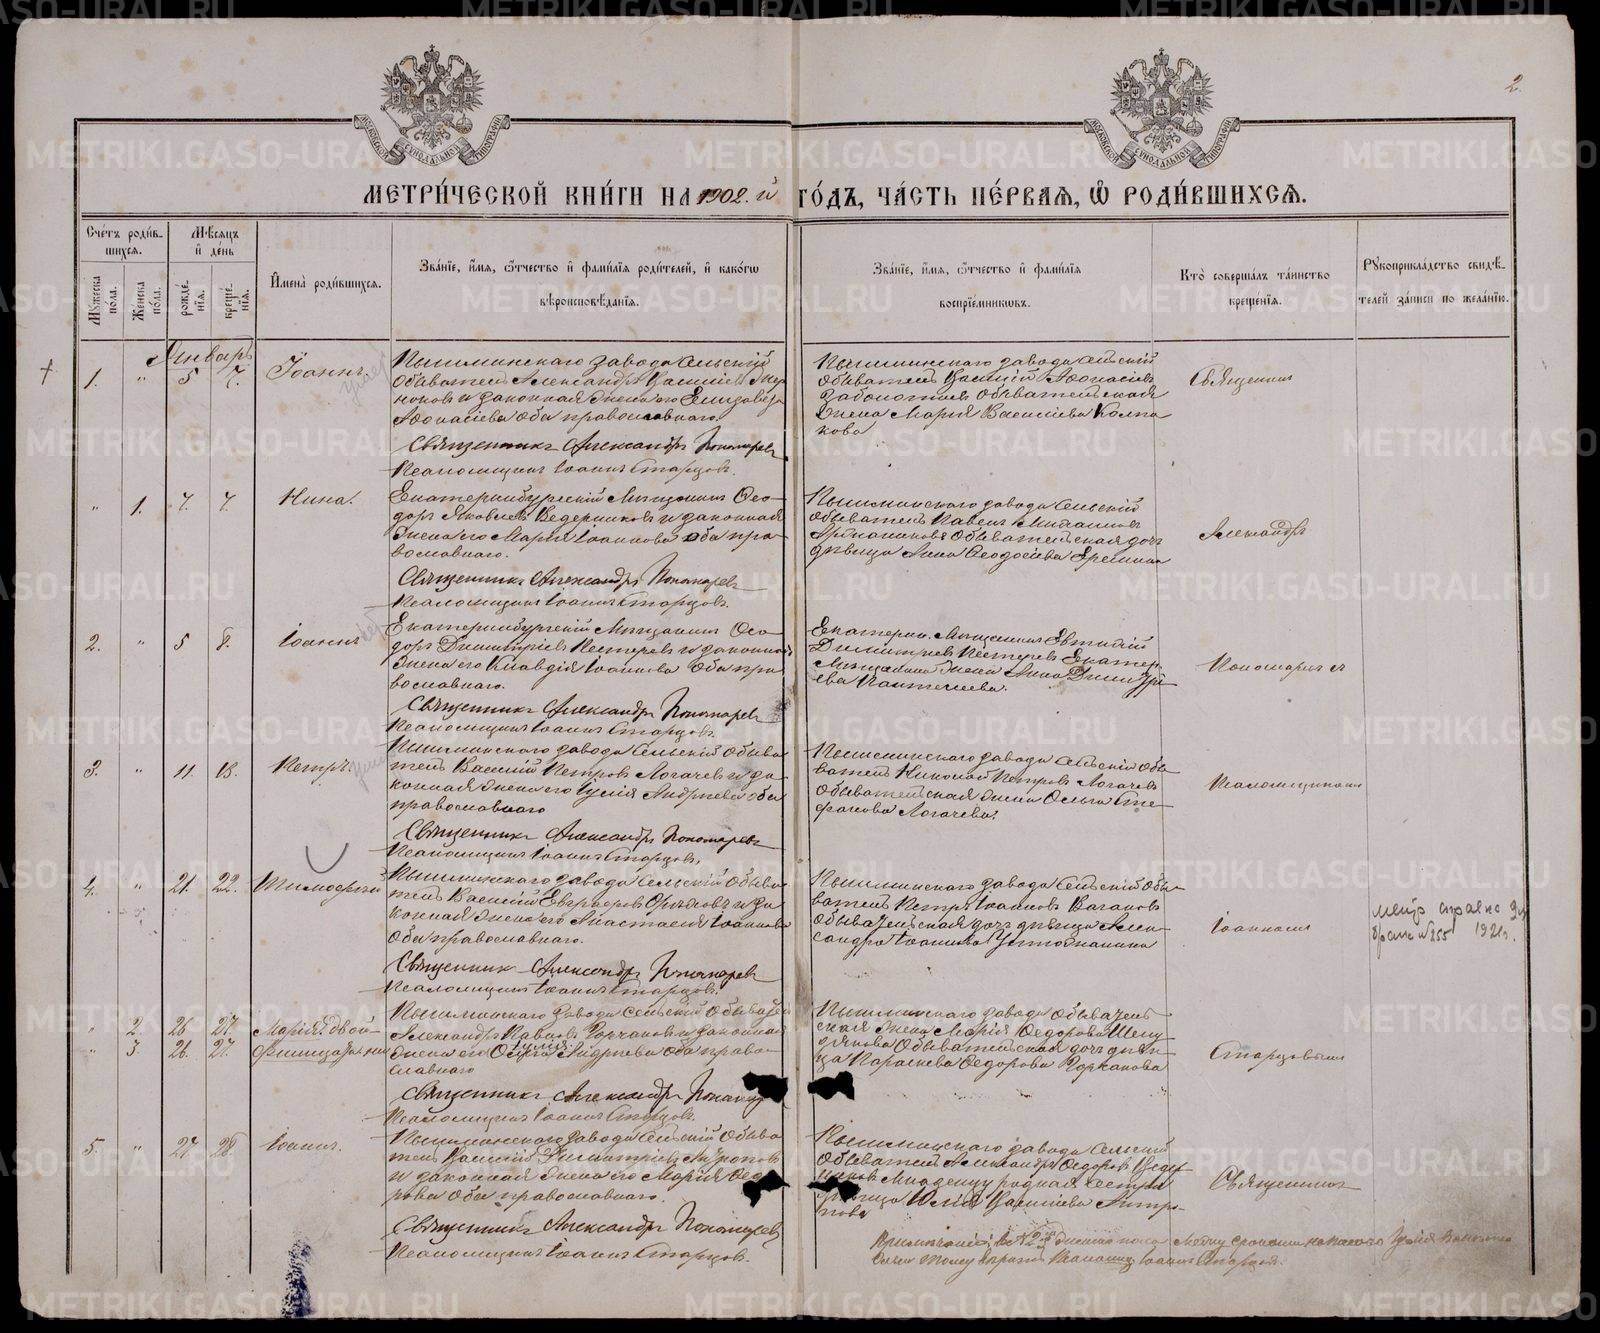 2.
МОСКОВСКОЙ СѴНОДАЛЬНОЙ ТИПОГРАФІИ
МОСКОВСКОЙ СѴНОДАЛЬНОЙ ТИПОГРАФІИ
МЕТРИ́ЧЕСКОЙ КНИ́ГИ НА 1902.й ГО́ДЪ, ЧА́СТЬ ПЕ́РВАѦ, Ѡ҆ РОДИ́ВШИХСѦ.
Сче́тъ роди́в-
шихсѧ.
Мꙋ́жеска по́ла.
Же́нска по́ла.
Мѣ́сѧцъ
и҆ де́нь
рожде́-
нїѧ.
креще́-
нїѧ.
И҆мена̀ роди́вшихсѧ.
Зва́нїе, и҆́мѧ, ѻ҆́тчество и҆ фами́лїѧ роди́телей, и҆ како́гѡ
вѣроисповѣ́данїѧ.
Зва́нїе, и҆́мѧ, ѻ҆́тчество и҆ фами́лїѧ
воспрїе́мникѡвъ.
Кто̀ соверша́лъ та́инство
креще́нїѧ.
Рꙋкоприкла́дство свидѣ́-
телей за́писи по жела́нїю.
Январь
1. " 5 7. Іоаннъ
Пышминскаго завода сельскій
обыватель Александръ Василіевъ
и законная жена его Елизавета
Аѳонасіева оба православнаго.
Священникъ Александръ Пономаревъ
Псаломщикъ Іоаннъ Старцовъ.
Пышминскаго завода сельскій
обыватель Василій Аѳонасіевъ
Заболотовъ обывательская
жена Марія Василіева Колпа-
кова
Священникъ
" 1. 7. 7. Нина.
Екатеринбургскій Мѣщанинъ Ѳео-
доръ Яковлевъ Ведерниковъ и законная
жена его Марія Іоаннова оба пра-
вославнаго.
Священникъ Александръ Пономаревъ
Псаломщикъ Іоаннъ Старцовъ.
Пышминскаго завода сельскій
обыватель Павелъ
обывательская дочь
дѣвица Анна Ѳеодосіева Еремина
Александръ
2. " 5 8. Іоаннъ
Екатеринбургскій Мѣщанинъ Ѳео-
доръ Димитріевъ Пестеревъ и законная
жена его Клавдія Іоаннова оба пра-
вославнаго.
Священникъ Александръ Пономаревъ
Псаломщикъ Іоаннъ Старцовъ.
Екатерин. Мѣщанинъ Евтихій
Димитріевъ Пестеревъ Екатер.
жена Анна Димитрі-
ева Пантелеева.
Пономаревъ
3. " 11. 13. Петръ.
Пышминскаго завода сельскій обыва-
тель Василій Петровъ Логачевъ и за-
конная жена его Іулія Андреева оба
православнаго
Священникъ Александръ Пономаревъ
Псаломщикъ Іоаннъ Старцовъ,
Пышминскаго завода сельскій обы-
ватель Николай Петровъ Логачевъ
обывательская жена Ольга Сте-
фанова Логачева.
Псаломщикомъ
4. " 21. 22. Тимоѳей
Пышминскаго завода сельскій обыва-
тель Василій Евграфовъ и за-
конная жена его Анастасія Іоаннова
оба православнаго.
Священникъ Александръ Пономаревъ
Псаломщикъ Іоаннъ Старцовъ.
Пышминскаго завода сельскій обы-
ватель Петръ Іоанновъ Вагановъ
обывательская дочь дѣвица Алек-
сандра Іоаннова Устюжанина
Іоанномъ
1921г.
" 2. 26 27. Марія двой-
" 3. 26. 27. Фелицата ни
Пышминскаго завода сельскій обыватель
Александръ Павловъ Горчаковъ и законная
жена его Іулія Андреева оба право-
славнаго
Священникъ Александръ Пономаревъ
Псаломщикъ Іоаннъ Старцовъ.
Пышминскаго завода обыватель-
ская жена Марія Ѳеодорова
обывательская дочь дѣви-
ца Параскева Ѳеодорова Горчакова
Старцовымъ
5. " 27 28. Іоаннъ.
Пышминскаго завода сельскій обыва-
тель Василій Димитріевъ Антроповъ
и законная жена его Марія Ѳеодо-
рова оба православнаго.
Священникъ Александръ Пономаревъ
Псаломщикъ Іоаннъ Старцовъ.
Пышминскаго завода сельскій
обыватель Александръ Ѳедоровъ
младенцу родная сестра
дѣвица Юлія Василіева Антро-
пова
Священникъ
Іоаннъ Старцовъ.
METRIKI.GASO-URAL.RU